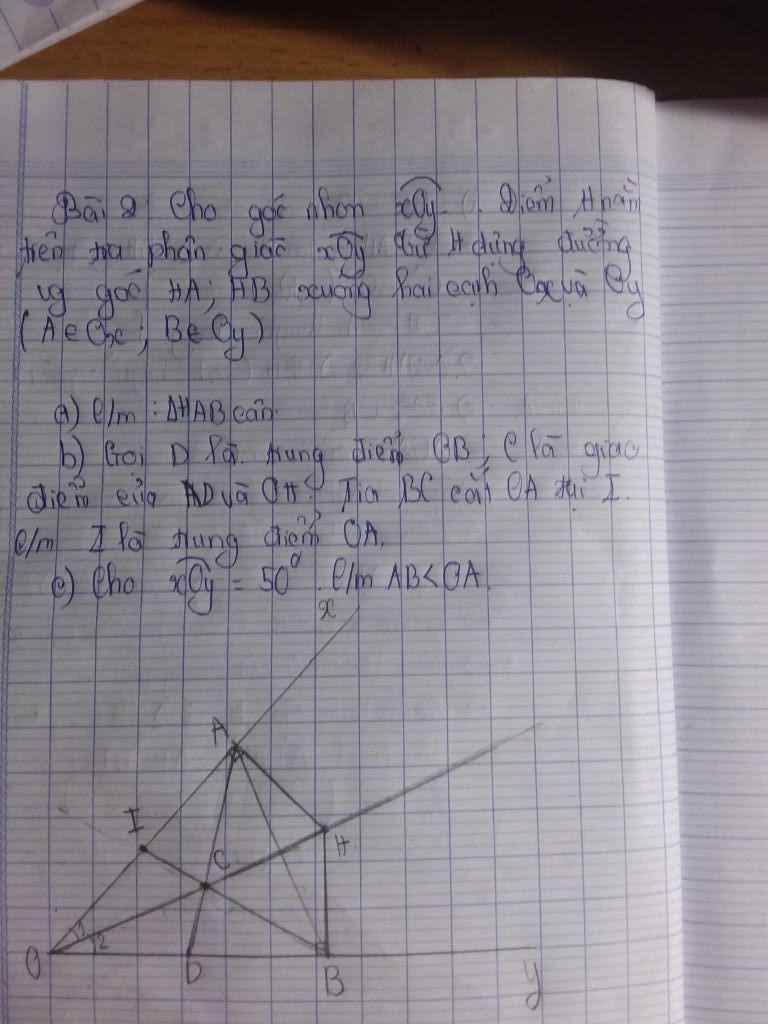 Bài 2 Cho góc nhọn xOy. Điểm H nằm
trên tia phân giác xOy từ H dựng đường
ng góc HA; HB xuống hai cạnh Ox và Oy
(A∈Ox; B∈Oy)
a) C/m: ΔHAB cân
b) Gọi D là trung điểm OB; C là giao
điểm của AD và OH. Tia BC cắt OA tại I.
C/m I là trung điểm OA.
c) Cho xOy = 50°. C/m AB<OA.
x
A
I
C
H
1
2
O
D
B
y